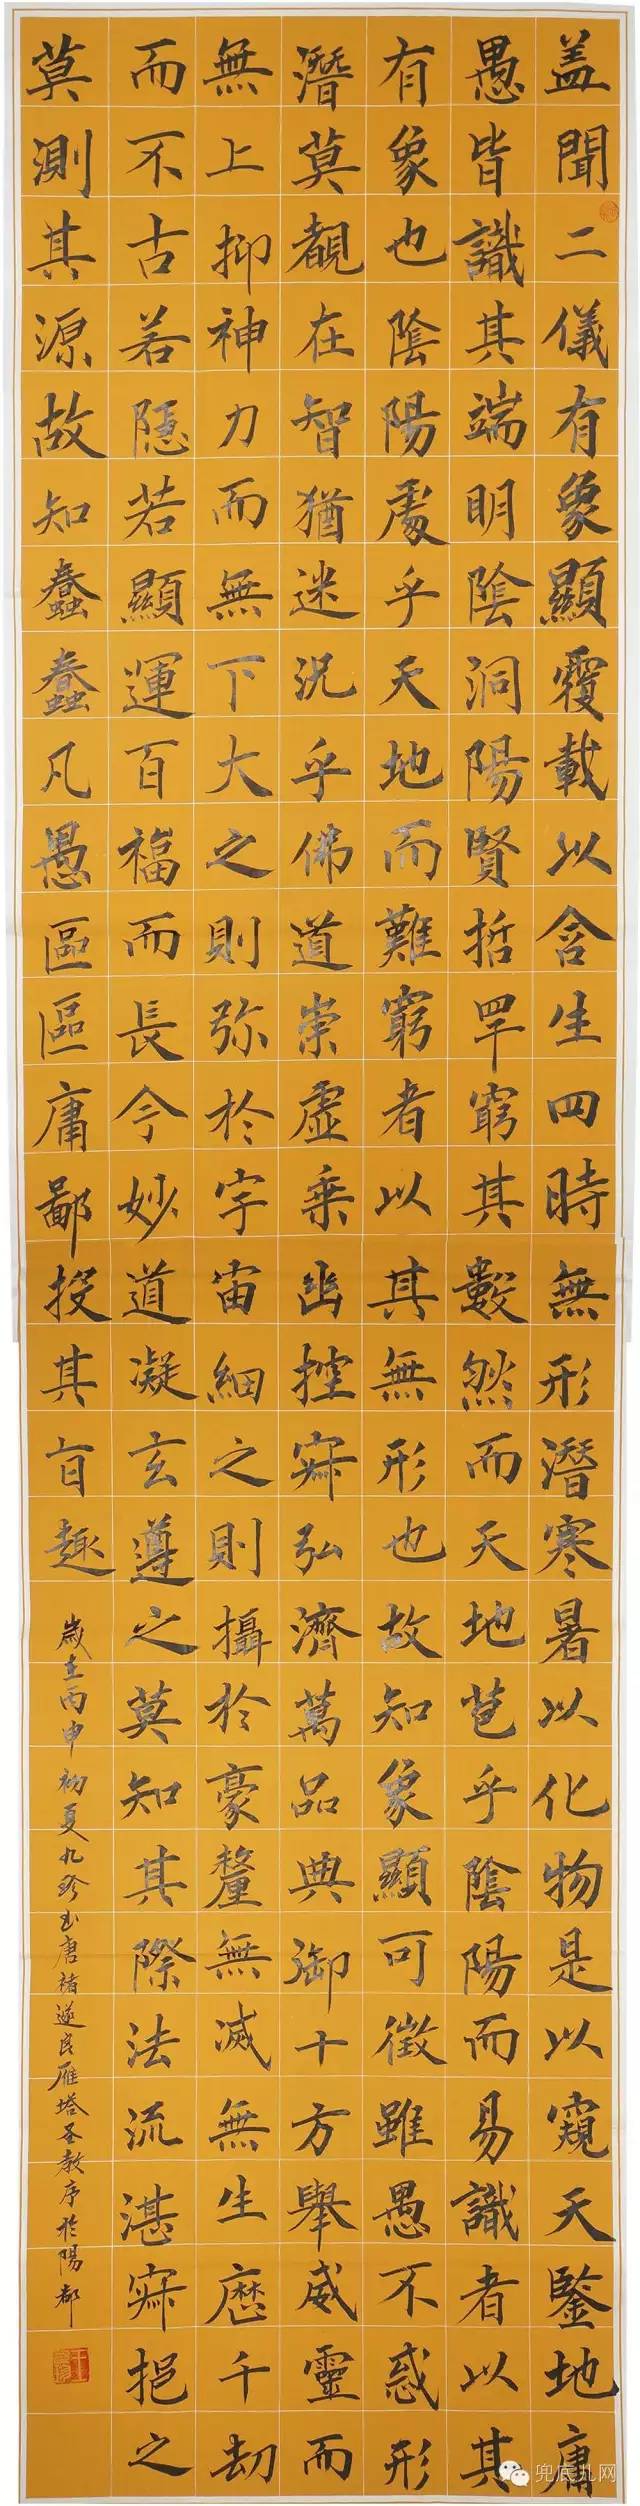 盖聞二儀有象顯覆載以含生四時無形潛寒暑以化物是以窺天鑒地庸
愚皆識其端明陰洞陽賢哲罕窮其數然而天地苞乎陰陽而易識者以其
有象也陰陽處乎天地而難窮者以其無形也故知象顯可徵雖愚不惑形
潛莫覩在智猶迷況乎佛道崇虛乘幽控寂弘濟萬品典御十方舉威靈而
無上抑神力而無下大之則弥於宇宙細之則攝於豪釐無滅無生歷千劫
而不古若隱若顯運百福而長今妙道凝玄遵之莫知其際法流湛寂挹之
莫測其源故知蠢蠢凡愚區區庸鄙投其旨趣
歲在丙申初夏九珍書唐褚遂良雁塔圣教序於陽都
兜底九网